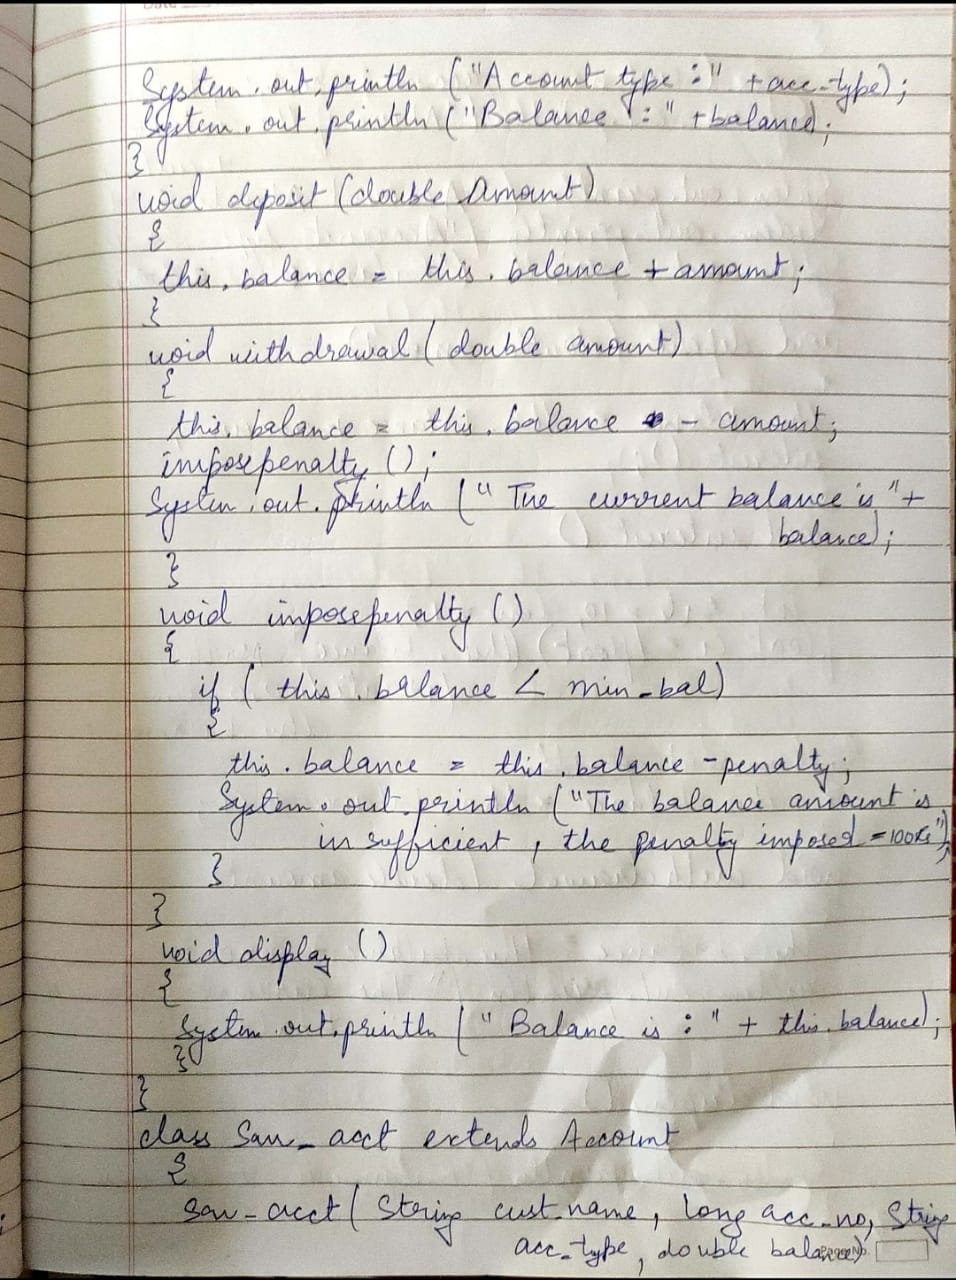 System.out.println ("Account type :" +acc_type);
System.out.println ("Balance :" +balance);
}
void deposit (double Amount)
{
this.balance = this.balance + amount;
}
void withdrawal ( double amount)
{
this.balance = this.balance - amount;
imposepenalty ();
System.out.println (" The current balance is "+
balance);
}
void imposepenalty ()
{
if ( this.balance < min_bal)
{
this.balance = this.balance -penalty;
System.out.println ("The balance amount is
insufficient , the penalty imposed =100Rs");
}
}
void display ()
{
System.out.println (" Balance is :" + this.balance);
}
}
class Sav_acct extends Account
{
Sav_acct ( String cust_name, long acc_no, String
acc_type, double balance)